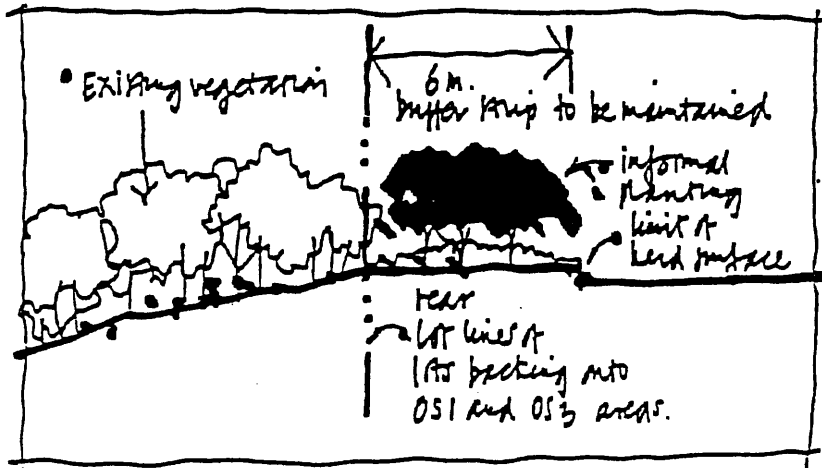 • Existing vegetation
6m.
buffer strip to be maintained
informal
planting
limit of
hard surface
rear
lot lines of
lots backing onto
OS1 and OS3 areas.